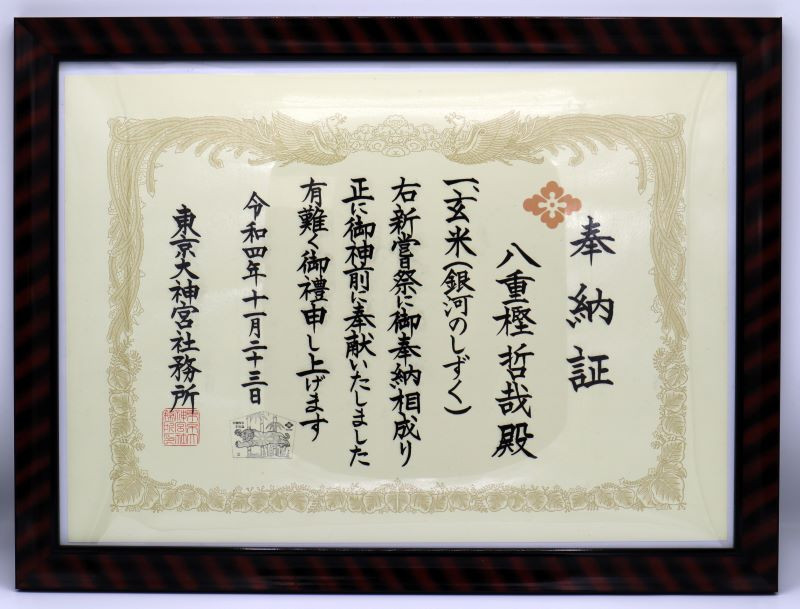 奉納証
八重樫哲哉殿
一、玄米(銀河のしずく)
右新嘗祭に御奉納相成り
正に御神前に奉献いたしました
有難く御禮申し上げます
令和四年十一月二十三日
東京大神宮社務所